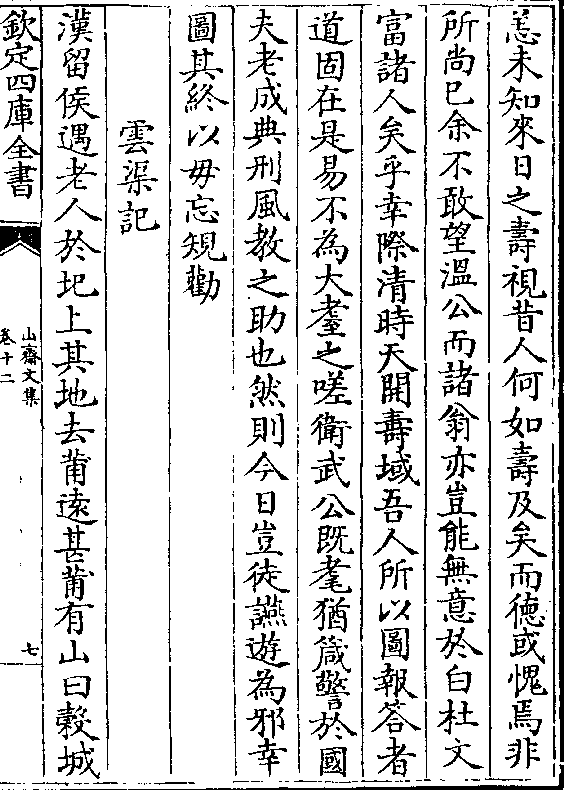 恙未知來日之壽視昔人何如壽及矣而徳或愧焉非
所尚已余不敢望溫公而諸翁亦豈能無意於白杜文
富諸人矣乎幸際清時天開壽域吾人所以圖報答者
道固在是易不為大耋之嗟衛武公既耄猶箴警於國
夫老成典刑風教之助也然則今日豈徒讌遊為邪幸
圖其終以毋忘規勸
雲渠記
漢留侯遇老人於圯上其地去莆遠甚莆有山曰榖城
欽定四庫全書
山齋文集
卷十二
七